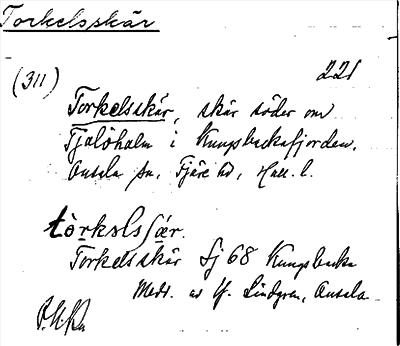 Torkelsskär
(311)
221
Torkelsskär, skär söder om
Fjolöholm i Kungsbackafjorden,
Onsala sn, Fjäre hd, Hall. l.
tòrkəlsʃær.
Torkelsskär Sj 68 Kungsbacka
Medd. av Lindgren, Onsala